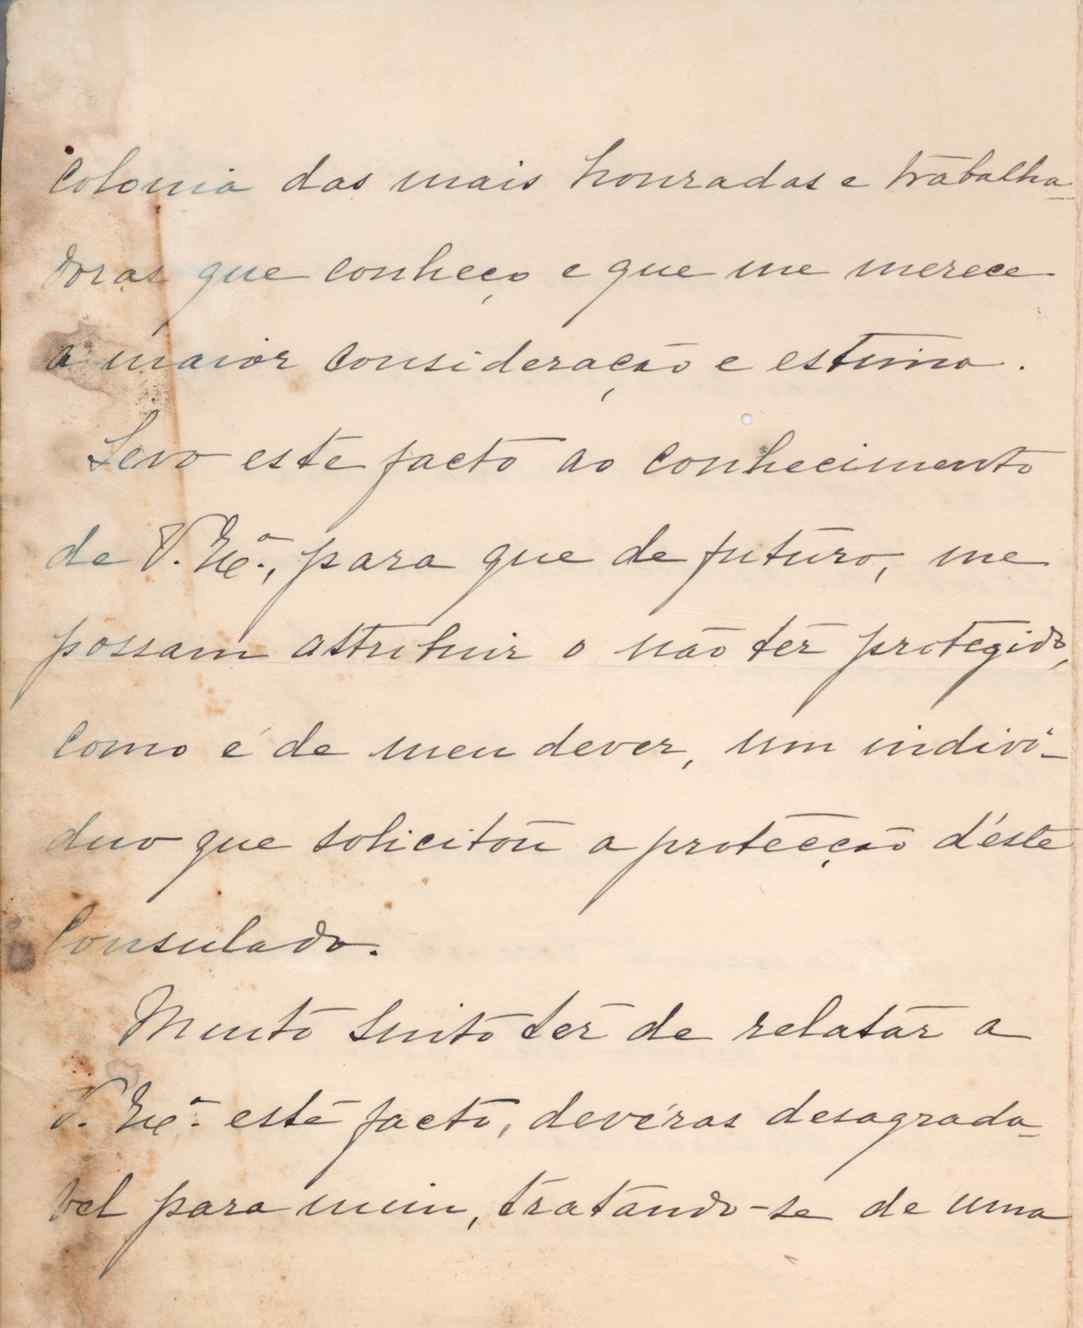 colonia das mais honradas e trabalha-
doras que conheço e que me merece
a maior consideração e estima.
Levo este facto ao conhecimento
de V. Exª., para que de futuro, me
possam attribuir o não ter protegido,
como é de meu dever, um indivi-
duo que solicitou a protecção d'éste
Consulado.
Muito sinto ter de relatar a
V. Exª. este facto, devéras desagrada-
vel para mim, tratando-se de uma